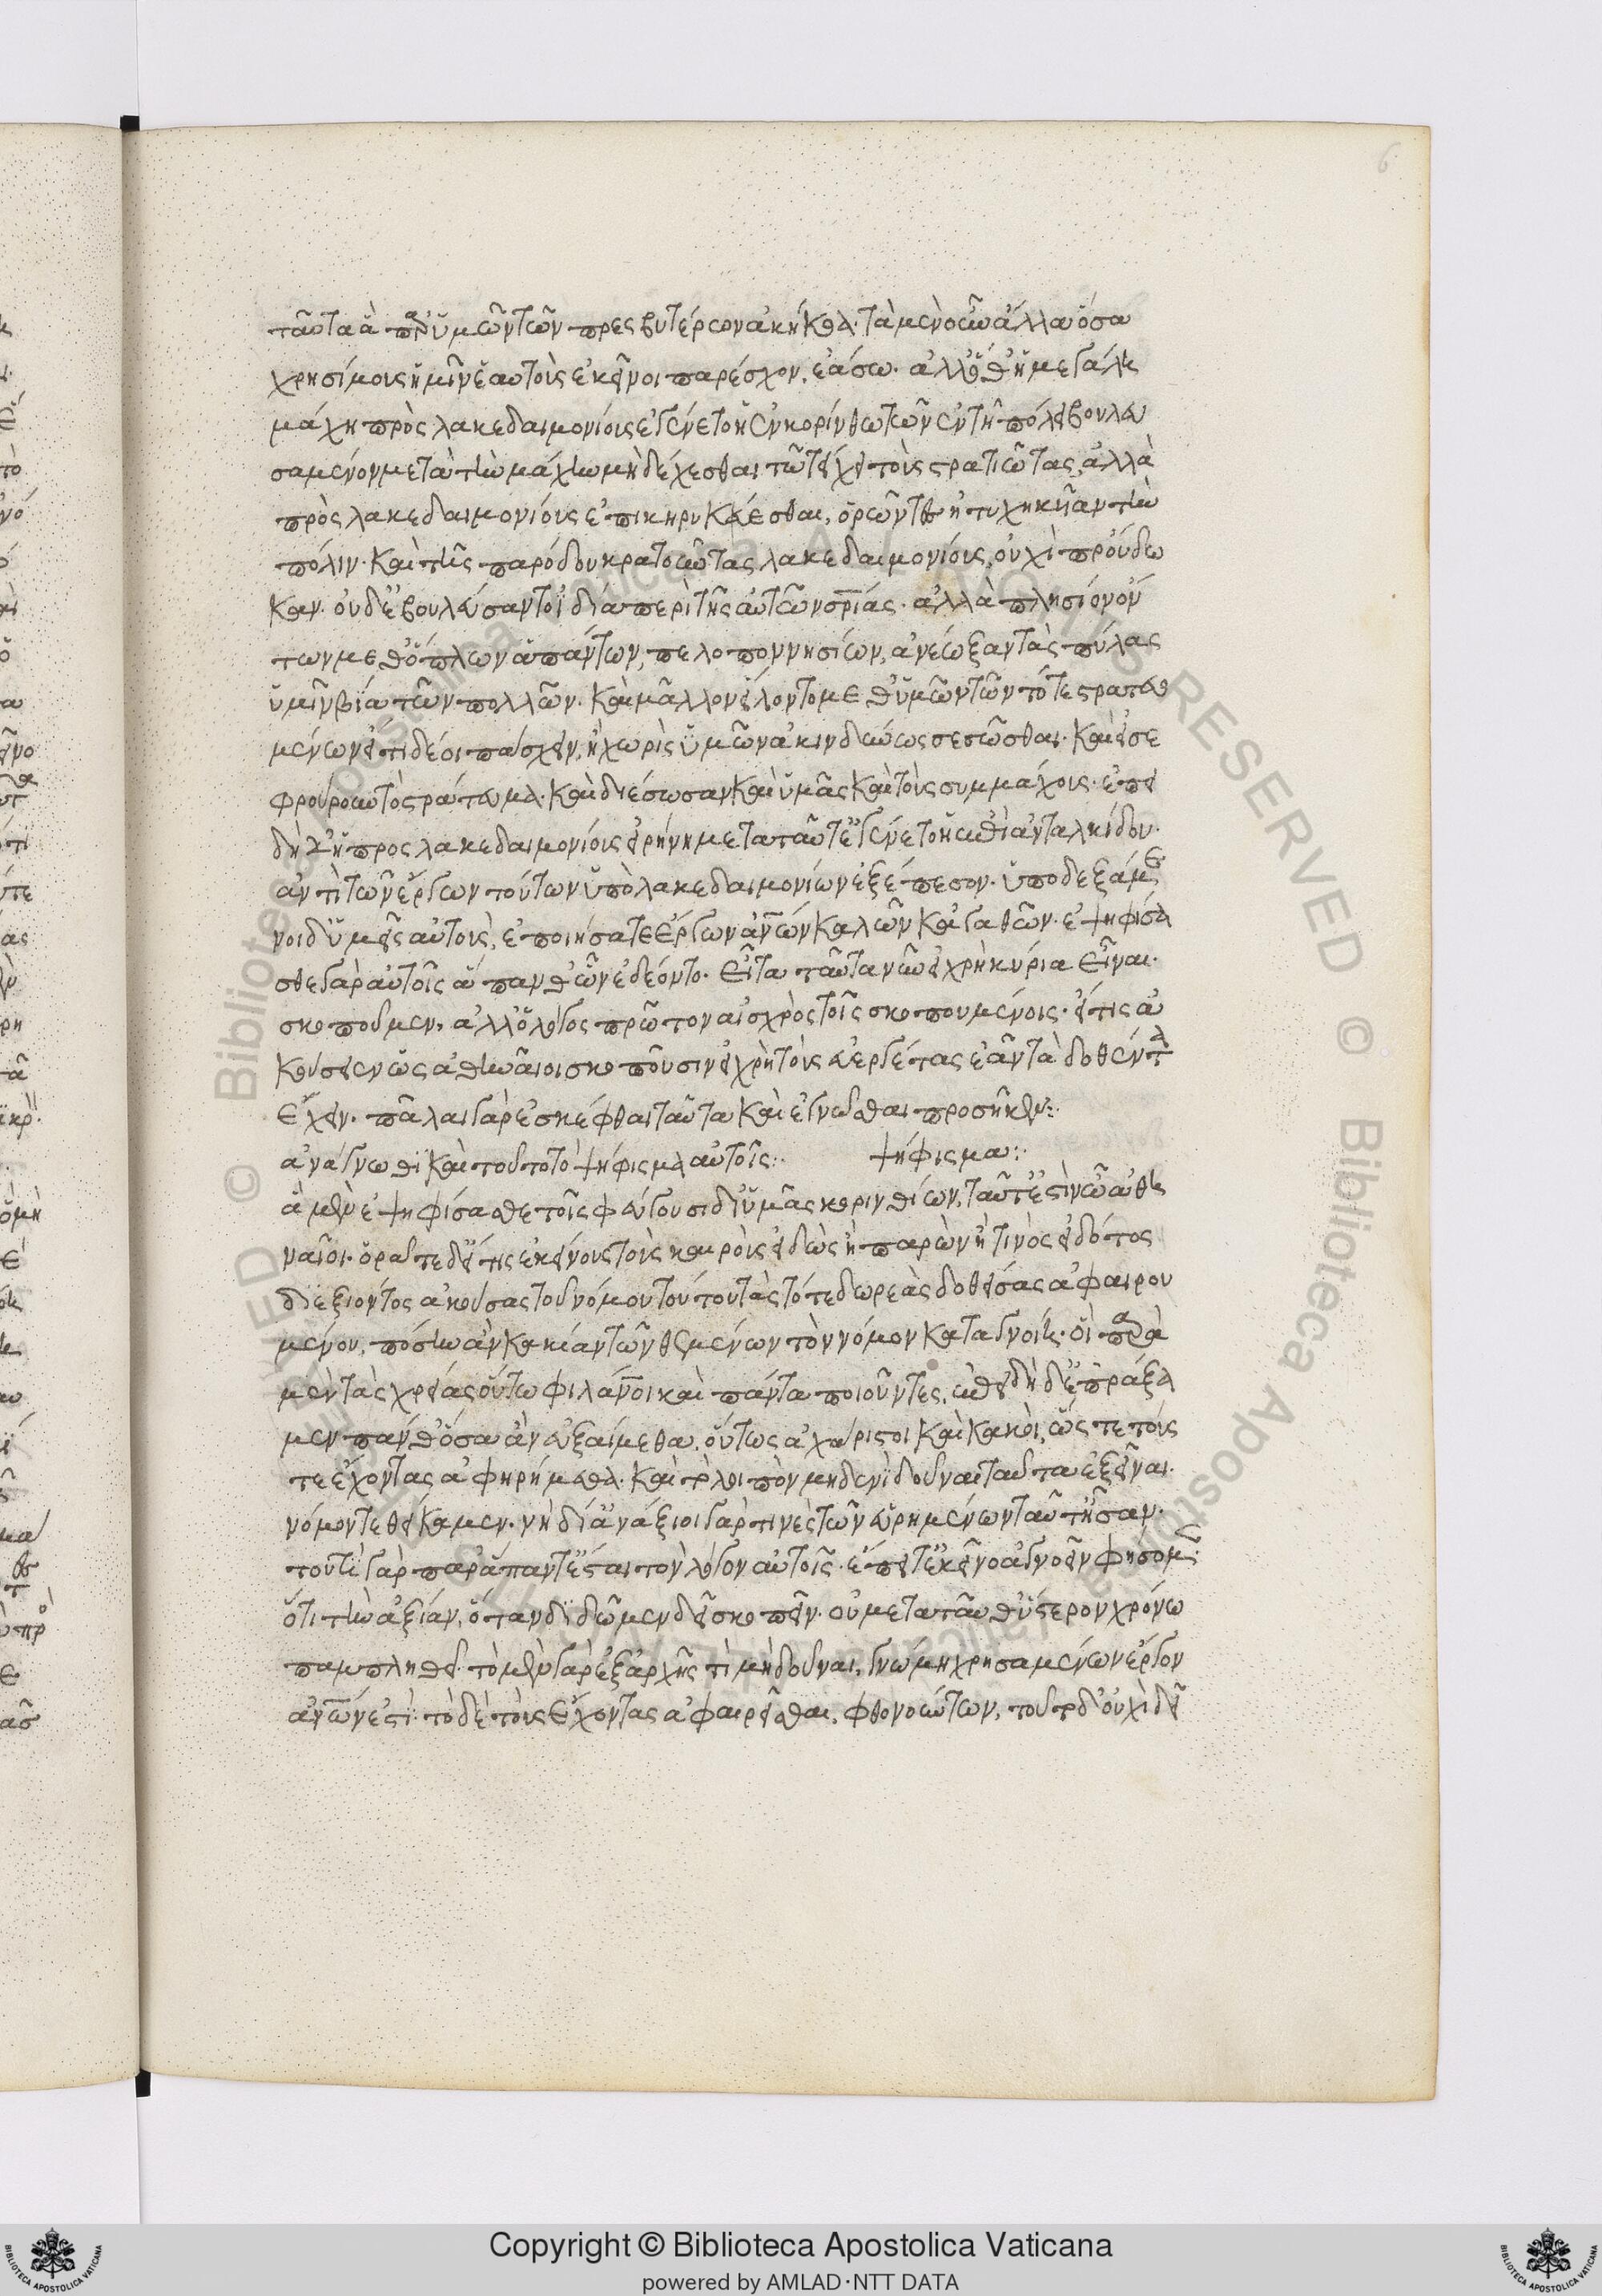 ταῦτα ἃ παρ' ὑμῶν τῶν πρεσβυτέρων ἀκήκοα· τὰ μὲν οὖν ἄλλα ὅσα
χρησίμους ἡμῖν ἑαυτοὺς ἐκεῖνοι παρέσχον, ἐάσω· ἀλλ' ὅθ' ἡ μεγάλη
μάχη πρὸς λακεδαιμονίους ἐγένετο ἡ ἐν κορίνθω τῶν ἐν τῇ πόλει βουλευ
σαμένον μετὰ τὴν μάχην μὴ δέχεσθαι τῷ τείχει τοὺς στρατιώτας, ἀλλὰ
πρὸς λακεδαιμονίους ἐπικηρυκεύεσθαι, ὁρῶντες ἠτυχηκυῖαν τὴν
πόλιν· καὶ τῆς παρόδου κρατοῦντας λακεδαιμονίους, οὐχὶ προὔδω
καν· οὐδ' ἐβουλεύσαντο ἰδία περὶ τῆς αὑτῶν σωτηρίας· ἀλλὰ πλησίον ὄν
των μεθ' ὅπλων ἁπάντων, πελοποννησίων, ἀνέωξαν τὰς πύλας
ὑμῖν βία τῶν πολλῶν· καὶ μᾶλλον εἵλοντο μεθ' ὑμῶν τῶν τότε στρατευ
μένων εἴ τι δέοι πάσχειν, ἢ χωρὶς ὑμῶν ἀκινδύνως σεσῶσθαι· καὶ εἰσε
φρούρουν τὸ στράτευμα· καὶ διέσωσαν καὶ ὑμᾶς καὶ τοὺς συμμάχους· ἐπει
δὴ δ' ἡ προς λακεδαιμονίους εἰρήνη μετα ταῦτ' ἐγένετο ἡ ἐπὶ ἀνταλκίδου·
ἀντὶ τῶν ἔργων τούτων ὑπὸ λακεδαιμονίων ἐξέπεσον· ὑποδεξάμε
νοι δ' ὑμεῖς αὐτοὺς, ἐποιήσατε ἔργων ἀνθρώπων καλῶν κἀγαθῶν· ἐψηφίσα
σθε γὰρ αὐτοῖς ἅπανθ' ὧν ἐδέοντο· εἶτα ταῦτα νῦν εἰ χρὴ κύρια εἶναι·
σκοποῦμεν, ἀλλ' ὁ λόγος πρῶτον αἰσχρὸς τοῖς σκοπουμένοις· εἴ τις ἀ
κούσειεν ὡς ἀθηναῖοι σκοποῦσιν εἰ χρὴ τοὺς εὐεργέτας ἐᾶν τὰ δοθέντα
ἔχειν· πάλαι γὰρ ἐσκέφθαι ταῦτα καὶ ἐγνῶσθαι προσῆκεν:·
ἀνάγνωθι καὶ τοῦτο τὸ ψήφισμα αὐτοῖς:· ψήφισμα:·
ἃ μὲν ἐψηφίσασθε τοῖς φεύγουσι δι' ὑμᾶς κορινθίων, ταῦτ' ἐστὶν ὦ ἀθη
ναῖοι· ὁρᾶτε δ' εἴ τις ἐκείνους τοὺς καιροὺς εἰδὼς ἢ παρὼν ἤ τινὸς εἰδότος
διεξιόντος ἀκούσας τοῦ νόμου τούτου τὰς τότε δωρεὰς δοθείσας ἀφαιρου
μένου, πόσην ἂν κακίαν τῶν θεμένων τὸν νόμον καταγνοίη· οἳ παρὰ
μὲν τὰς χρείας οὕτω φιλάνθρωποι καὶ πάντα ποιοῦντες, ἐπειδὴ δ' ἐπράξα
μεν πάνθ' ὅσα ἂν εὐξαίμεθα, οὕτως ἀχάριστοι καὶ κακοὶ, ὥστε τούς
τε ἔχοντας ἀφηρήμεθα· καὶ τὸ λοιπὸν μηδενὶ δοῦναι ταῦτα ἐξεῖναι·
νόμον τεθείκαμεν· νὴ δί' ἀνάξιοι γάρ τινὲς τῶν εὑρημένων ταῦτ' ἦσαν·
τουτὶ γὰρ παρ' ἅπαντ' ἔσται τὸν λόγον αὐτοῖς· εἶπειτ' ἐκεῖνο ἀγνοεῖν φήσομεν·
ὅτι τὴν ἀξίαν, ὅταν διδῶμεν δεῖ σκοπεῖν· οὐ μετα ταῦθ' ὕστερον χρόνω
παμπληθεῖ· τὸ μὲν γὰρ ἐξ ἀρχῆς τὶ μὴ δοῦναι, γνώμη χρησαμένων ἔργον
ἀνθρώπων ἐστί· τὸ δὲ τοὺς ἔχοντας ἀφαιρεῖσθαι, φθονούντων, τοῦτο δ' οὐχὶ δεῖ